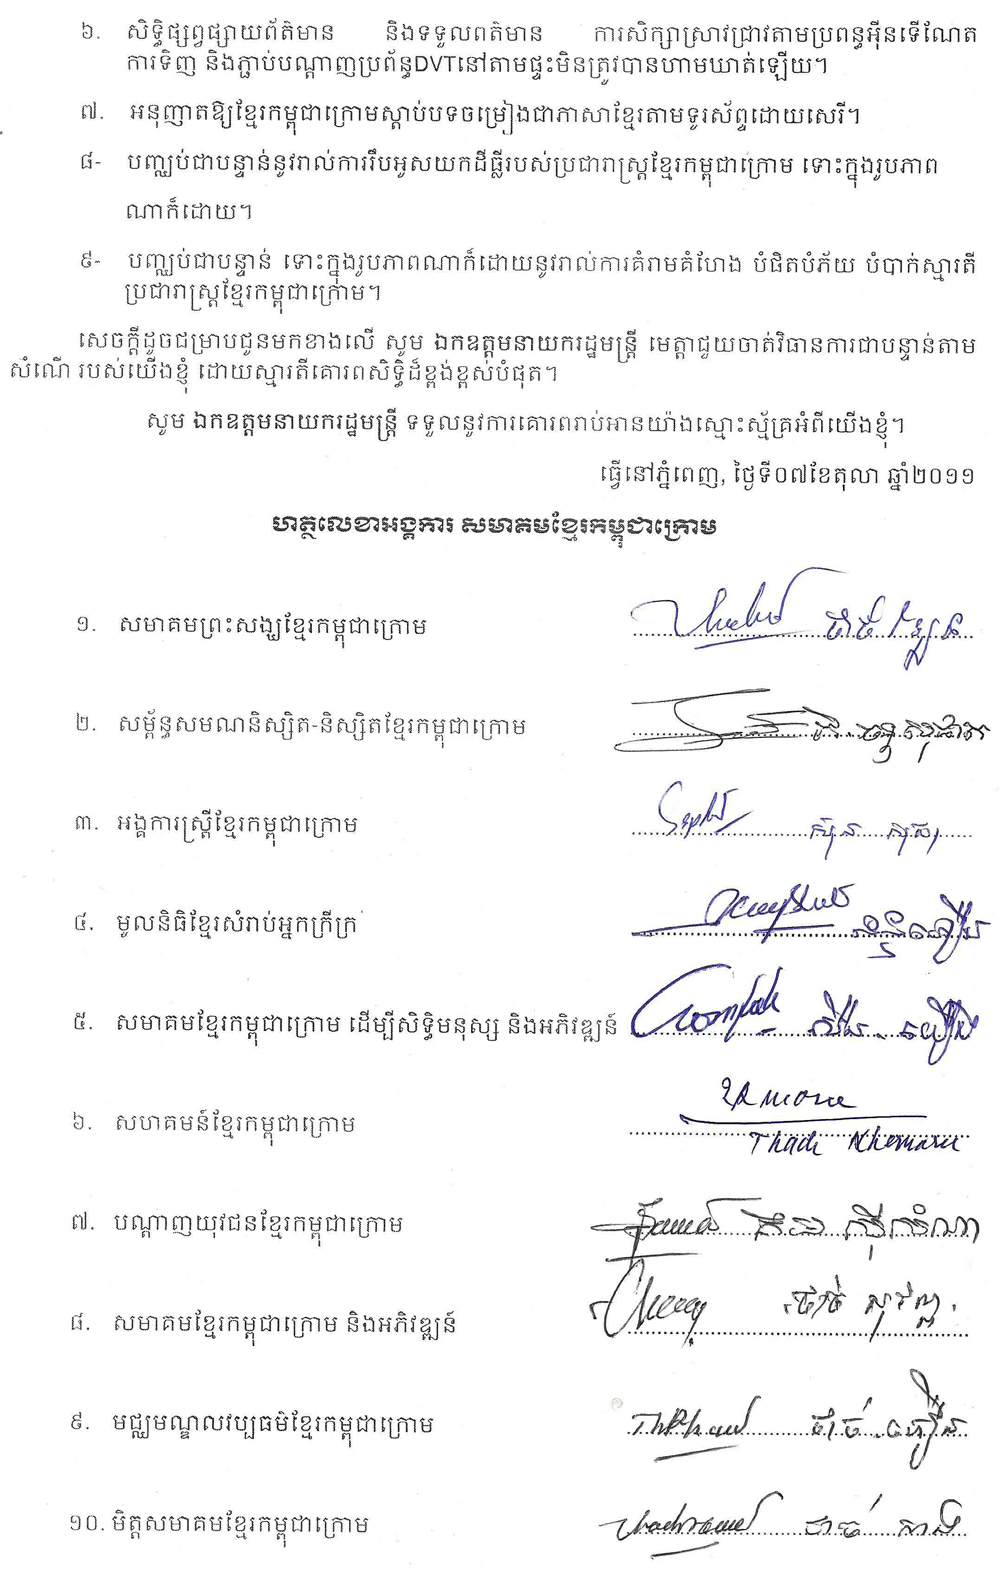 ៦. សិទ្ធិផ្សព្វផ្សាយព័ត៌មាន និងទទួលពត៌មាន ការសិក្សាស្រាវជ្រាវតាមប្រពន្ធអ៊ីនទើណែត
ការទិញ និងភ្ជាប់បណ្តាញប្រព័ន្ធDVTនៅតាមផ្ទះមិនត្រូវបានហាមឃាត់ឡើយ។
៧. អនុញាតឱ្យខ្មែរកម្ពុជាក្រោមស្តាប់បទចម្រៀងជាភាសាខ្មែរតាមទូរស័ព្ទដោយសេរី។
៨- បញ្ឈប់ជាបន្ទាន់នូវរាល់ការរឹបអូសយកដីធ្លីរបស់ប្រជារាស្ត្រខ្មែរកម្ពុជាក្រោម ទោះក្នុងរូបភាព
ណាក៏ដោយ។
៩- បញ្ឈប់ជាបន្ទាន់ ទោះក្នុងរូបភាពណាក៏ដោយនូវរាល់ការគំរាមគំហែង បំផិតបំភ័យ បំបាក់ស្មារតី
ប្រជារាស្ត្រខ្មែរកម្ពុជាក្រោម។
សេចក្តីដូចជម្រាបជូនមកខាងលើ សូម ឯកឧត្តមនាយករដ្ឋមន្ត្រី មេត្តាជួយចាត់វិធានការជាបន្ទាន់តាម
សំណើ របស់យើងខ្ញុំ ដោយស្មារតីគោរពសិទ្ធិដ៏ខ្ពង់ខ្ពស់បំផុត។
សូម ឯកឧត្តមនាយករដ្ឋមន្ត្រី ទទួលនូវការគោរពរាប់អានយ៉ាងស្មោះស្ម័គ្រអំពីយើងខ្ញុំ។
ធ្វើនៅភ្នំពេញ, ថ្ងៃទី០៧ខែតុលា ឆ្នាំ២០១១
ហត្ថលេខាអង្គការ សមាគមខ្មែរកម្ពុជាក្រោម
១. សមាគមព្រះសង្ឃខ្មែរកម្ពុជាក្រោម
២. សម្ព័ន្ធសមណនិស្សិត-និស្សិតខ្មែរកម្ពុជាក្រោម
៣. អង្គការស្ត្រីខ្មែរកម្ពុជាក្រោម
៤. មូលនិធិខ្មែរសំរាប់អ្នកក្រីក្រ
៥. សមាគមខ្មែរកម្ពុជាក្រោម ដើម្បីសិទ្ធិមនុស្ស និងអភិវឌ្ឍន៍
៦. សហគមន៍ខ្មែរកម្ពុជាក្រោម
Thach Khemarin
៧. បណ្តាញយុវជនខ្មែរកម្ពុជាក្រោម
៨. សមាគមខ្មែរកម្ពុជាក្រោម និងអភិវឌ្ឍន៍
៩. មជ្ឈមណ្ឌលវប្បធម៌ខ្មែរកម្ពុជាក្រោម
១០. មិត្តសមាគមខ្មែរកម្ពុជាក្រោម